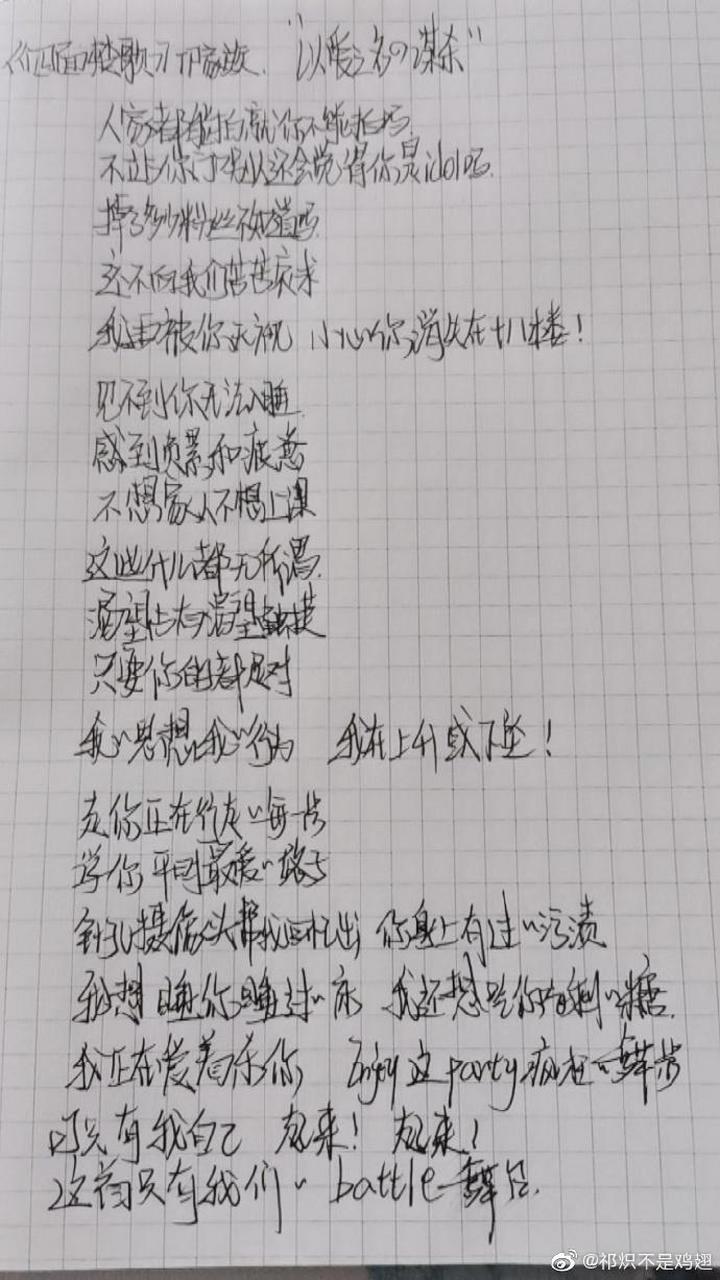 “以爱之名の谋杀”
人家都能拍就你不能拍吗
不过你们 还会觉得你是idol吗
掉了多少粉丝不知道吗
还不是我们苦苦哀求
我 被你无视 小心你消失在十八楼!
见不到你无法入睡
感到负累和疲惫
不想家人不想上课
这些什么都无所谓
渴望占有渴望触摸
只要你的都是对
我的思想我的行为 我在上升或下坠!
走你正在行走的每一步
学你平时最爱的
针孔摄像头帮我 你身上有过的污渍
我想睡你睡过的床 我还想吃你吃剩的糖
我正在爱着杀你 Enjoy这party疯狂的舞步
只有我自己 起来! 起来!
这首只有我们的battle舞曲
@祁炽不是鸡翅